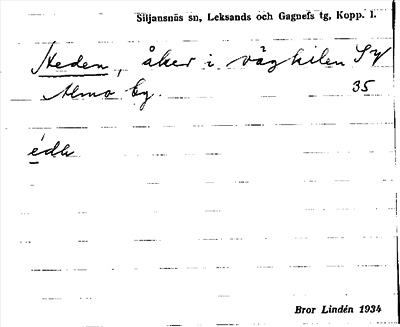 Siljansnäs sn, Leksands och Gagnefs tg, Kopp. l.
Heden, åker i vägkilen SV
Almo by. 35
édh
Bror Lindén 1934